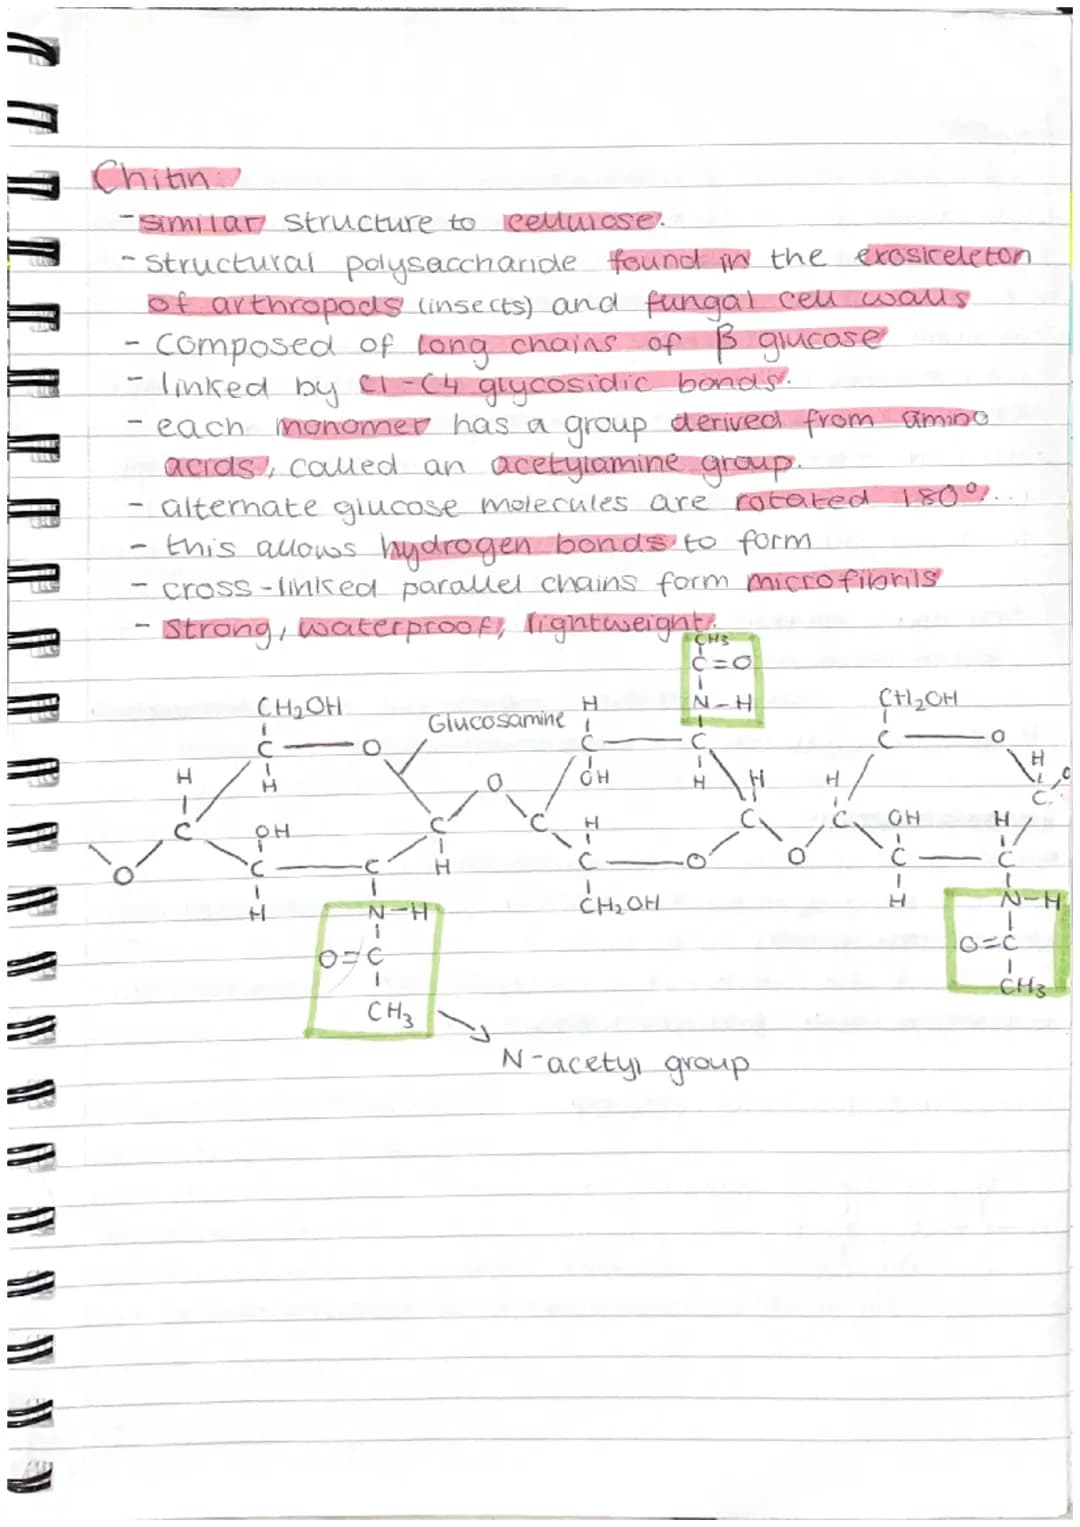 Chitin
- similar structure to cellulose.
- structural polysaccharide found in the exoskeleton
of arthropods (insects) and fungal cell walls
- composed of long chains of β glucose
- linked by C1-C4 glycosidic bonds.
- each monomer has a group derived from amino
acids, called an acetylamine group.
- alternate glucose molecules are rotated 180°...
- this allows hydrogen bonds to form
- cross-linked parallel chains form microfibrils
- Strong, waterproof, lightweight.
CH3
C=O
CH2OH H N-H CH2OH
Glucosamine
C O C C C O
H H OH H H H H C O
O
C OH C H C C OH H
O C C C H C O O C C
H N-H CH2OH H N-H
O=C O=C
CH3 CH3
N-acetyl group